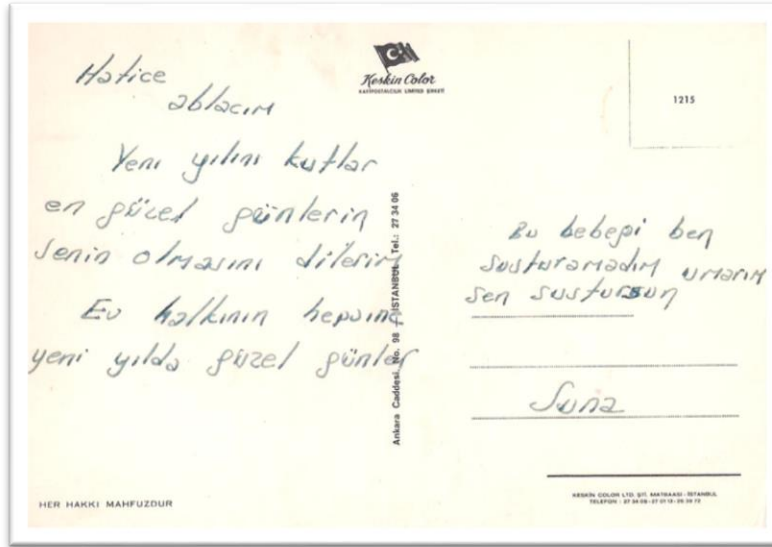 Hatice
ablacım
Yeni yılını kutlar
en güzel günlerin
senin olmasını dilerim
Ev halkının hepsine
yeni yılda güzel günler
Keskin Color
KARTPOSTALCILIK LIMITED ŞİRKETİ
1215
Ankara Caddesi, No. 98 - İSTANBUL Tel.: 27 34 06
Bu bebeği ben
susturamadım umarım
sen sustursun
Suna
HER HAKKI MAHFUZDUR
KESKİN COLOR LTD. ŞTİ. MATBAASI - İSTANBUL
TELEFON :